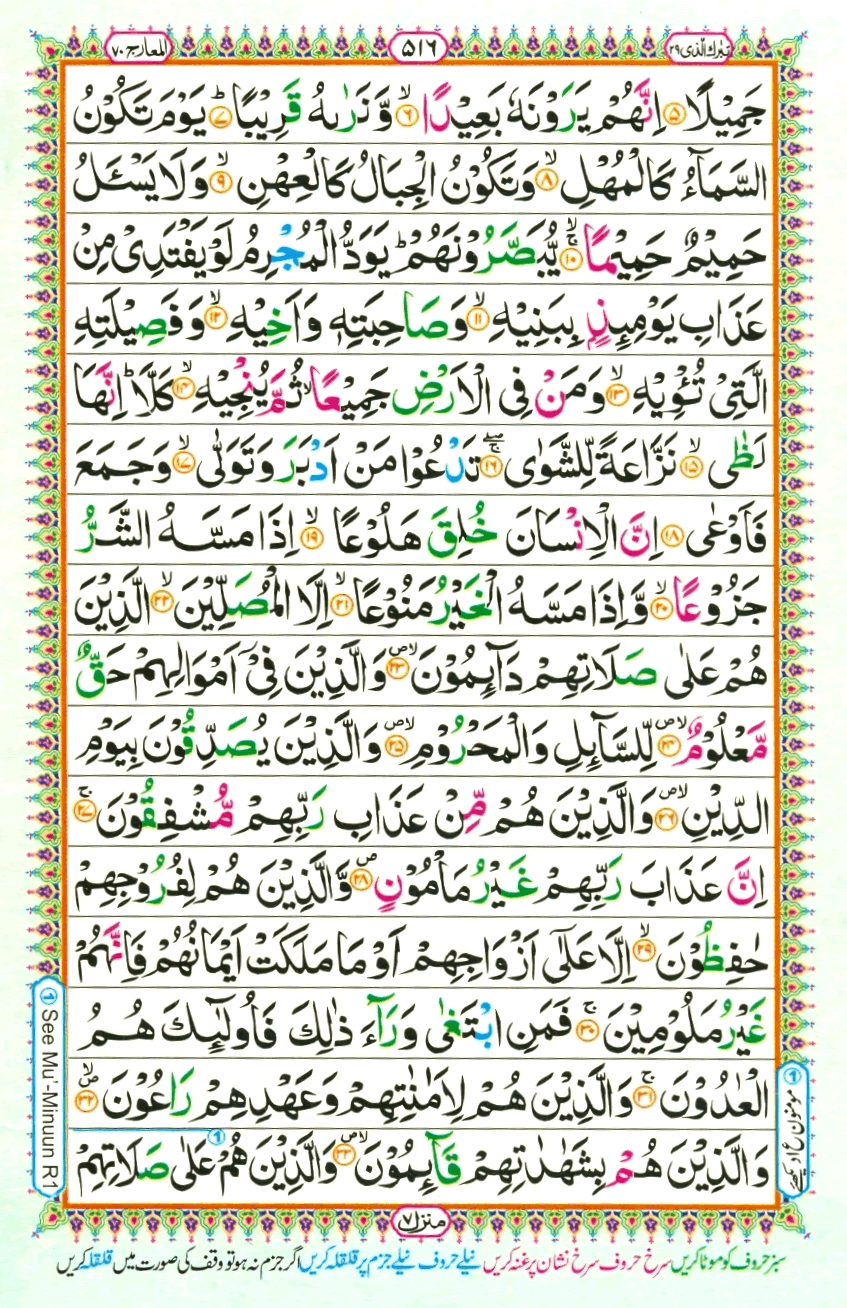 تبٰرك الّذی ۲۹
۵۱۶
المعارج ۷۰
جَمِيْلًا ۵ اِنَّهُمْ يَرَوْنَهٗ بَعِيْدًا ۙ۶ وَّ نَرٰىهُ قَرِيْبًا ؕ۷ يَوْمَ تَكُوْنُ
السَّمَآءُ كَالْمُهْلِ ۙ۸ وَتَكُوْنُ الْجِبَالُ كَالْعِهْنِ ۙ۹ وَلَا يَسْـَٔلُ
حَمِيْمٌ حَمِيْمًا ۚۖ۱۰ يُّبَصَّرُوْنَهُمْ ؕ يَوَدُّ الْمُجْرِمُ لَوْ يَفْتَدِىْ مِنْ
عَذَابِ يَوْمِئِذٍۭ بِبَنِيْهِ ۙ۱۱ وَصَاحِبَتِهٖ وَاَخِيْهِ ۙ۱۲ وَفَصِيْلَتِهِ
الَّتِىْ تُـْٔوِيْهِ ۙ۱۳ وَمَنْ فِى الْاَرْضِ جَمِيْعًا ۙ ثُمَّ يُنْجِيْهِ ۙ۱۴ كَلَّا ؕ اِنَّهَا
لَظٰى ۙ۱۵ نَزَّاعَةً لِّلشَّوٰى ۚۖ۱۶ تَدْعُوْا مَنْ اَدْبَرَ وَتَوَلّٰى ۙ۱۷ وَجَمَعَ
فَاَوْعٰى ۱۸ اِنَّ الْاِنْسَانَ خُلِقَ هَلُوْعًا ۙ۱۹ اِذَا مَسَّهُ الشَّرُّ
جَزُوْعًا ۙ۲۰ وَّاِذَا مَسَّهُ الْخَيْرُ مَنُوْعًا ۙ۲۱ اِلَّا الْمُصَلِّيْنَ ۙ۲۲ الَّذِيْنَ
هُمْ عَلٰى صَلَاتِهِمْ دَآئِمُوْنَ ۪ۙ۲۳ وَالَّذِيْنَ فِىْۤ اَمْوَالِهِمْ حَقٌّ
مَّعْلُوْمٌ ۪ۙ۲۴ لِّلسَّآئِلِ وَالْمَحْرُوْمِ ۪ۙ۲۵ وَالَّذِيْنَ يُصَدِّقُوْنَ بِيَوْمِ
الدِّيْنِ ۪ۙ۲۶ وَالَّذِيْنَ هُمْ مِّنْ عَذَابِ رَبِّهِمْ مُّشْفِقُوْنَ ۚ۲۷
اِنَّ عَذَابَ رَبِّهِمْ غَيْرُ مَاْمُوْنٍ ۪۲۸ وَّالَّذِيْنَ هُمْ لِفُرُوْجِهِمْ
حٰفِظُوْنَ ۙ۲۹ اِلَّا عَلٰٓى اَزْوَاجِهِمْ اَوْ مَا مَلَكَتْ اَيْمَانُهُمْ فَاِنَّهُمْ
غَيْرُ مَلُوْمِيْنَ ۚ۳۰ فَمَنِ ابْتَغٰى وَرَآءَ ذٰلِكَ فَاُولٰٓئِكَ هُمُ
الْعٰدُوْنَ ۚ۳۱ وَالَّذِيْنَ هُمْ لِاَمٰنٰتِهِمْ وَعَهْدِهِمْ رَاعُوْنَ ۪ۙ۳۲
وَالَّذِيْنَ هُمْ بِشَهٰدٰتِهِمْ قَآئِمُوْنَ ۪ۙ۳۳ وَالَّذِيْنَ هُمْ عَلٰى صَلَاتِهِمْ ۱
۱ مومنون ع ۱ دیکھئے
۱ See Mu'-Minuun R1
منزل ۷
سبز حروف کو موٹا کریں سرخ حروف سرخ نشان پر غنہ کریں نیلے حروف نیلے جزم پر قلقلہ کریں اگر جزم نہ ہو تو وقف کی صورت میں قلقلہ کریں